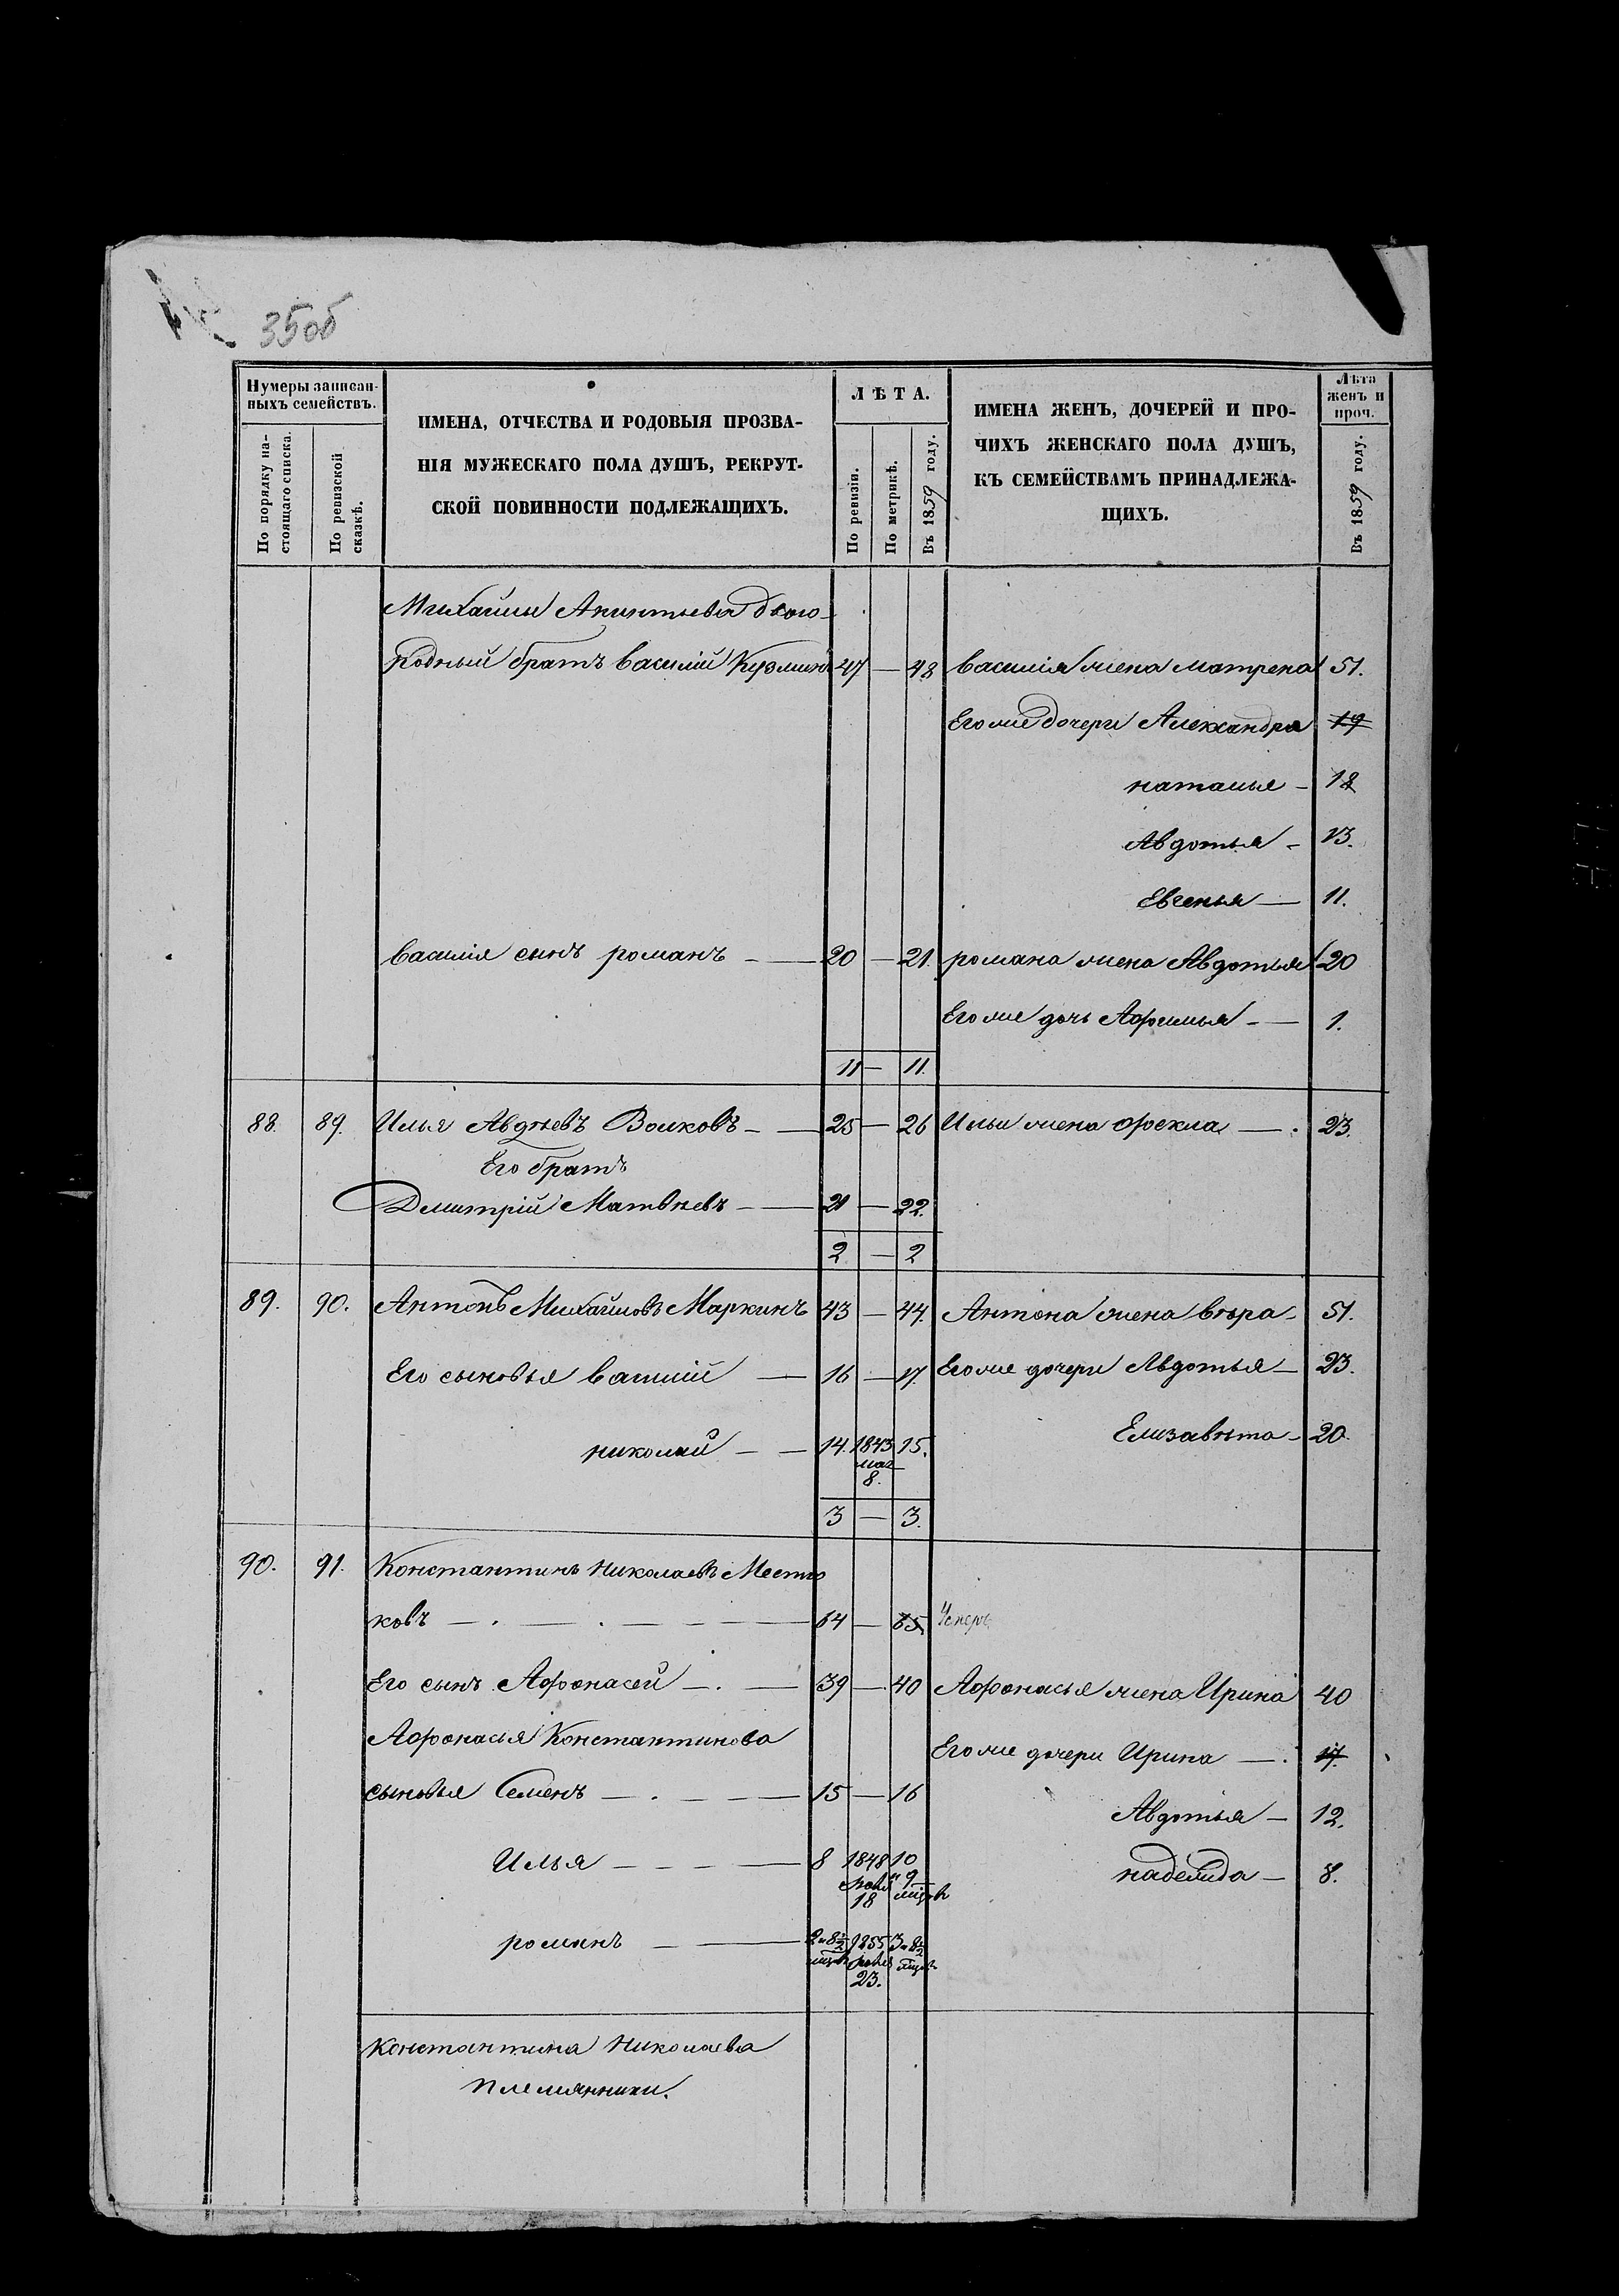 35об
Нумеры записан-
ныхъ семействъ.
По порядку на-
стоящаго списка.
По ревизской
сказкѣ.
ИМЕНА, ОТЧЕСТВА И РОДОВЫЯ ПРОЗВА-
НІЯ МУЖЕСКАГО ПОЛА ДУШЪ, РЕКРУТ-
СКОЙ ПОВИННОСТИ ПОДЛЕЖАЩИХЪ.
ЛѢТА.
По ревизіи.
По метрикѣ.
Въ 1859 году.
ИМЕНА ЖЕНЪ, ДОЧЕРЕЙ И ПРО-
ЧИХЪ ЖЕНСКАГО ПОЛА ДУШЪ,
КЪ СЕМЕЙСТВАМЪ ПРИНАДЛЕЖА-
ЩИХЪ.
Лѣта
женъ и
проч.
Въ 1859 году.
Михайлы двою-
родный братъ василій Кузминъ 47 — 48 василія жена матрена 51.
Его же дочери Александра 19
наталья — 18
Авдотья — 13.
Евгенья — 11.
василія сынъ романъ — 20 — 21. романа жена Авдотья 20
Его же дочь Афимья — 1.
11 — 11.
88. 89. Илья Авдѣевъ Волковъ — 25 — 26 Ильи жена Фекла — 23.
Его братъ
Дмитрій Матвѣевъ — 21 — 22.
2 — 2
89. 90. Антонъ Михайловъ Маркинъ 43 — 44. Антона жена вѣра — 51.
Его сыновья василій — 16 — 17. Его же дочери Авдотья — 23.
николай — 14. 1843 15. Елизавѣта — 20.
мая
8.
3 — 3.
90. 91. Константинъ Николаевъ
ковъ — 64 — 65
Его сынъ Афонасей — 39 — 40 Афонасья жена Ирина 40
Афонасья Константинова
Его же дочери Ирина — 17.
сыновья Семенъ — 15 — 16
Авдотья — 12.
Илья — 8 1848 10
и 9
18 мѣсяц
надежда — 8.
романъ — 2 и 8½ 1855 3 и 8½
23.
Константина Николаева
племянники.